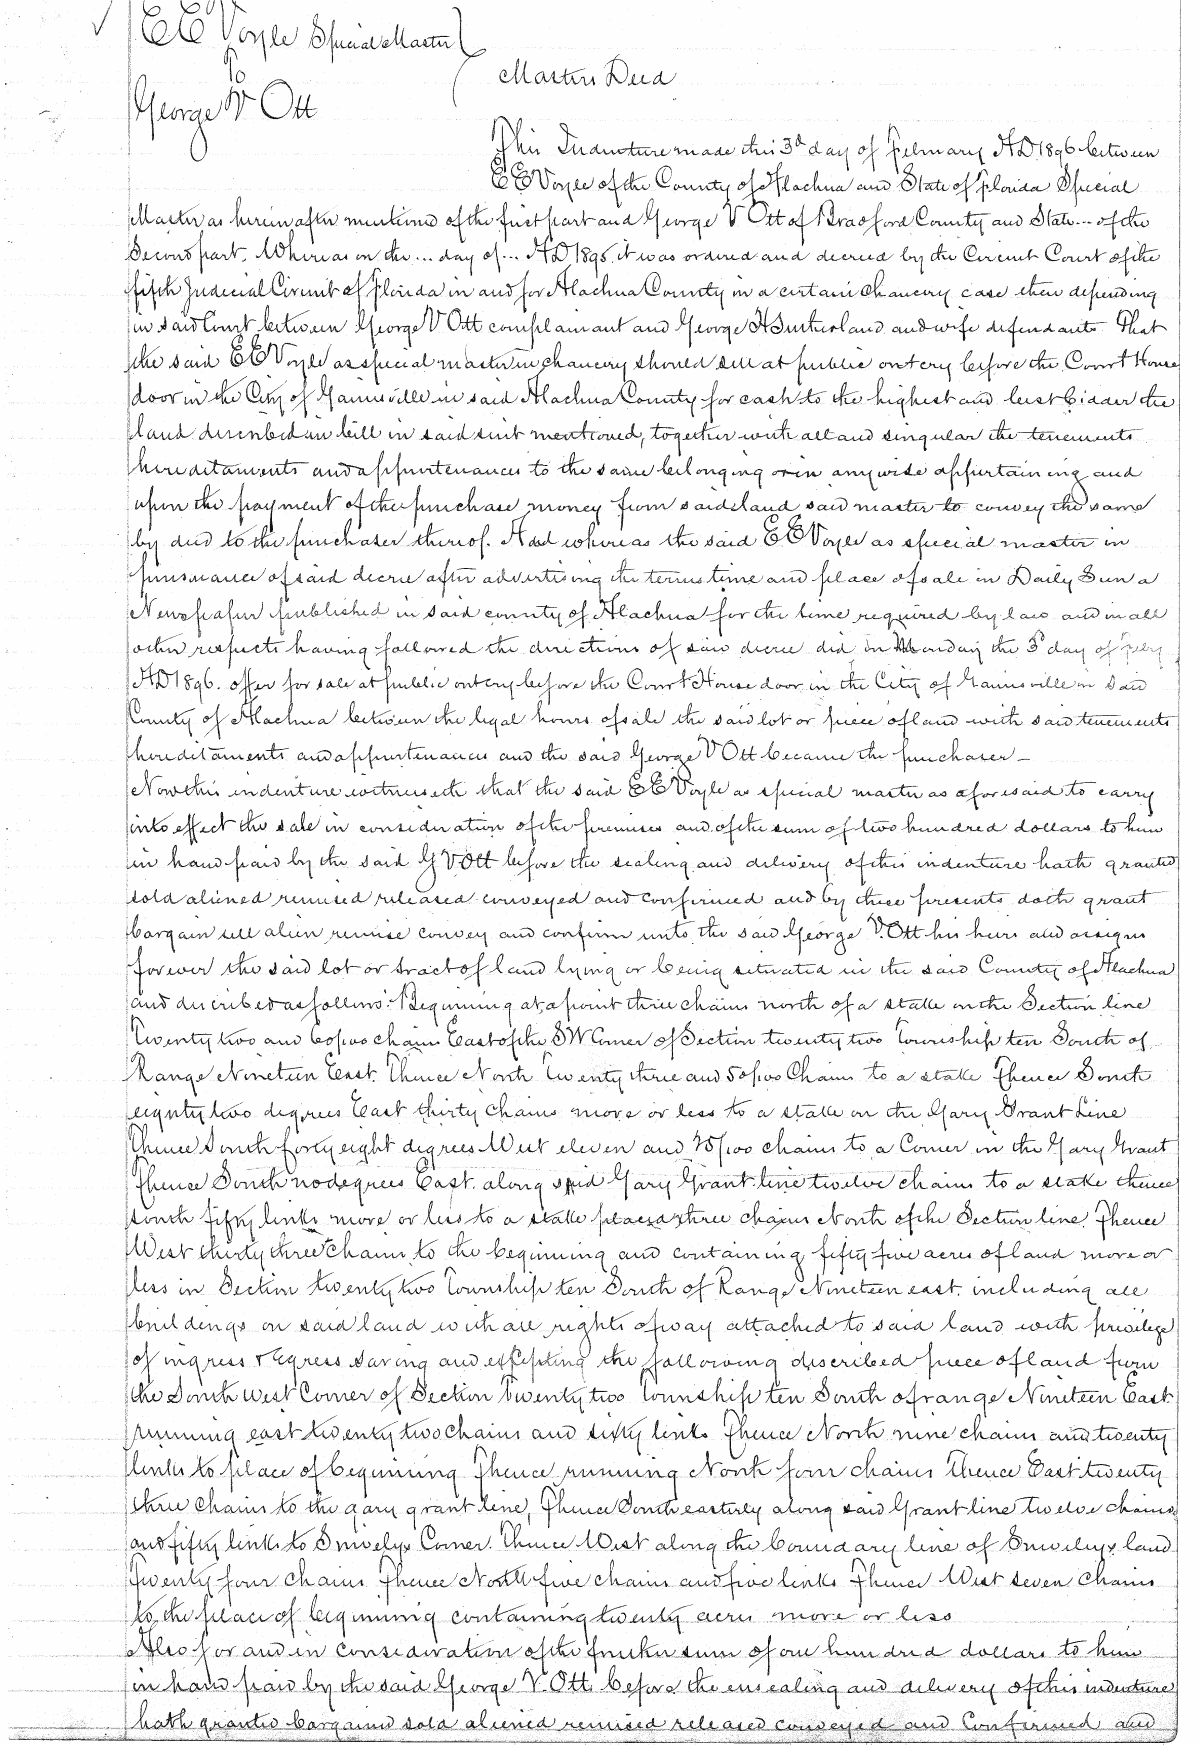 E E Voyle Special Master
To
Masters Deed
George V Ott
This Indenture made this 3d day of February AD 1896 between
E E Voyle of the County of Alachua and State of Florida Special
Master as herein after mentioned of the first part and George V Ott of Bradford County and State ... of the
Second part. Whereas on the ... day of ... AD 1895 it was ordered and decreed by the Circuit Court of the
fifth Judicial Circuit of Florida in and for Alachua County in a certain Chancery case then depending
in said Court between George V Ott complainant and George H Sutherland and wife defendants That
the said E E Voyle as special master in chancery should sell at public outcry before the Court House
door in the City of Gainesville in said Alachua County for cash to the highest and best bidder the
land described in bill in said suit mentioned, together with all and singular the tenements
hereditaments and appurtenances to the same belonging or in anywise appurtaining and
upon the payment of the purchase money from said land said master to convey the same
by deed to the purchaser thereof. And whereas the said E E Voyle as special master in
pursuance of said decree after advertising the terms time and place of sale in Daily Sun a
Newspaper published in said county of Alachua for the time required by law and in all
other respects having followed the directions of said decree did, on Monday the 3d day of Feby
AD 1896. offer for sale at public outcry before the Court House door in the City of Gainesville in Said
County of Alachua between the legal hours of sale the said lot or piece of land with said tenements
hereditaments and appurtenances and the said George V Ott became the purchaser —
Now this indenture witnesseth that the said E E Voyle as special master as aforesaid to carry
into effect the sale in consideration of the premises and of the sum of two hundred dollars to him
in hand paid by the said G V Ott before the sealing and delivery of this indenture hath granted
sold aliened remised released conveyed and confirmed and by these presents doth grant
bargain sell alien remise convey and confirm unto the said George V. Ott his heirs and assigns
forever the said lot or tract of land lying or being situated in the said County of Alachua
and described as follows: Beginning at a point three chains north of a stake on the Section line
Twenty two and 60/100 chains East of the SW Corner of Section twenty two Township ten South of
Range Nineteen East. Thence North Twenty three and 50/100 Chains to a stake Thence South
eighty two degrees East thirty chains more or less to a stake on the Gary Grant Line
Thence South forty eight degrees West eleven and 75/100 chains to a Corner in the Gary Grant
Thence South no degrees East. along said Gary Grant line twelve chains to a stake thence
south fifty links more or less to a stake placed three chains North of the Section line. Thence
West thirty three chains to the beginning and containing fifty five acres of land more or
less in Section twenty two Township ten South of Range Nineteen east. including all
buildings on said land with all rights of way attached to said land with privilege
of ingress & Egress saving and excepting the following described piece of land from
the South west Corner of Section Twenty two Township ten South of range Nineteen East
running east twenty two chains and sixty links Thence North nine chains and twenty
links to place of beginning Thence running North four chains Thence East twenty
three Chains to the gary grant line, Thence South easterly along said Grant line twelve chains
and fifty links to Snivelys Corner. Thence West along the boundary line of Snivelys land
Twenty four chains Thence North five chains and five links Thence West seven chains
to the place of beginning containing twenty acres more or less
Also for and in consideration of the further sum of one hundred dollars to him
in hand paid by the said George V. Ott before the ensealing and delivery of this indenture
hath granted bargained sold aliened remised released conveyed and confirmed and